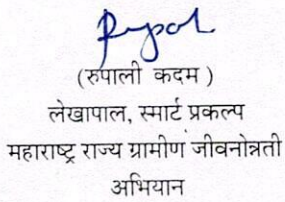 (रुपाली कदम )
लेखापाल, स्मार्ट प्रकल्प
महाराष्ट्र राज्य ग्रामीण जीवनोन्नती
अभियान